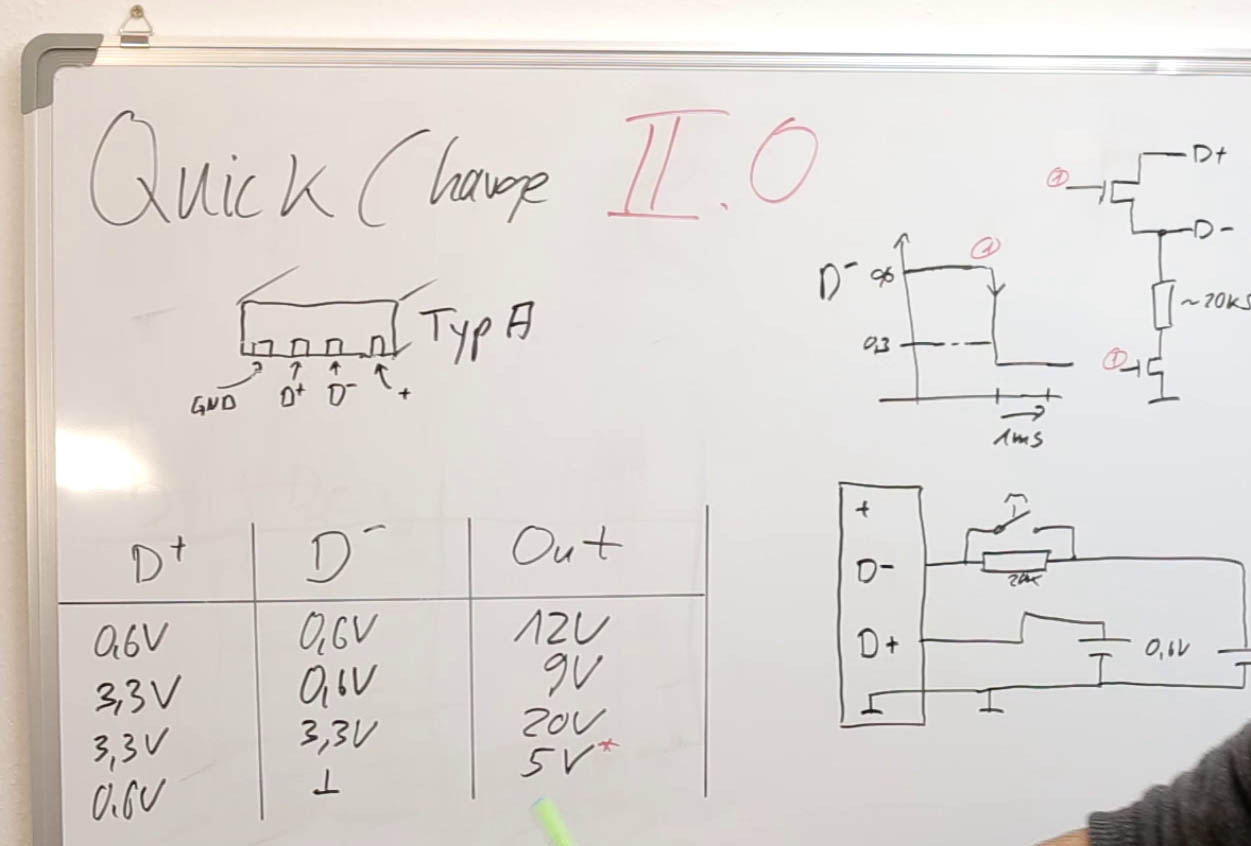 Quick Charge II.0
Typ A
GND D+ D- +
D+ D- Out
0,6V 0,6V 12V
3,3V 0,6V 9V
3,3V 3,3V 20V
0,6V ⊥ 5V*
① D+
D-
~20k
①
D- 0,6 ①
0,3
1ms
+
D- 20k
D+ 0,6V